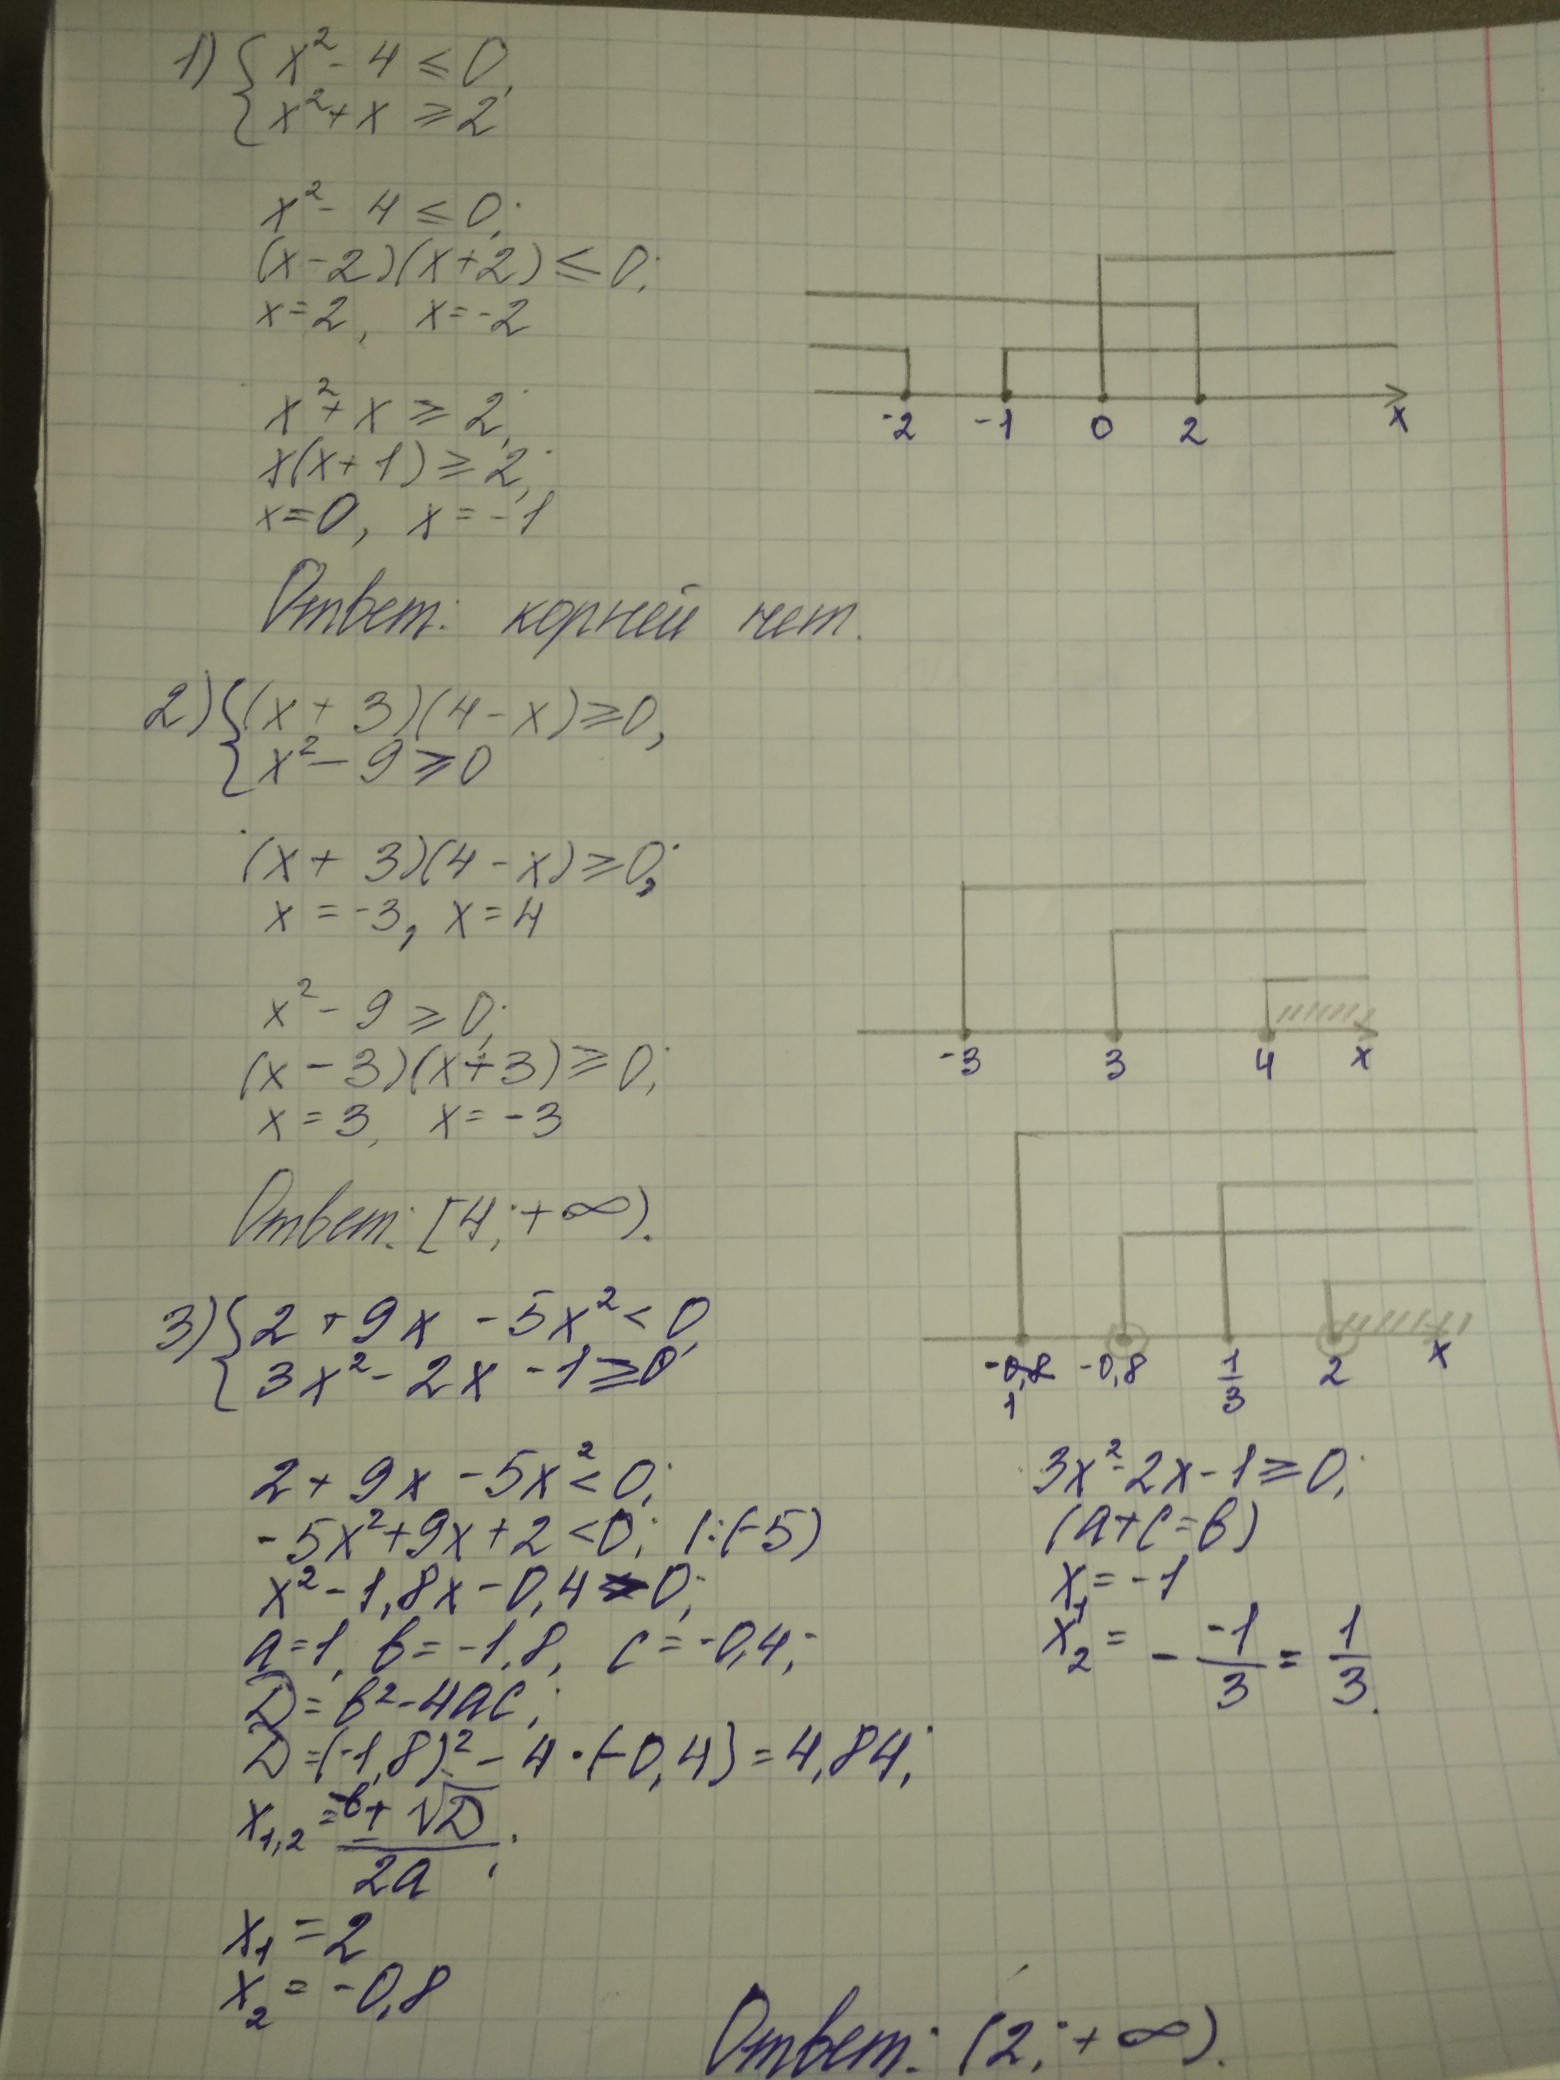 1) { x² - 4 ≤ 0,
x² + x ≥ 2
x² - 4 ≤ 0;
(x - 2)(x + 2) ≤ 0;
x = 2, x = -2
x² + x ≥ 2;
x(x + 1) ≥ 2;
x = 0, x = -1
-2 -1 0 2 x
Ответ: корней нет.
2) { (x + 3)(4 - x) ≥ 0,
x² - 9 ≥ 0
(x + 3)(4 - x) ≥ 0;
x = -3, x = 4
x² - 9 ≥ 0;
(x - 3)(x + 3) ≥ 0;
x = 3, x = -3
-3 3 4 x
Ответ: [4; +∞).
3) { 2 + 9x - 5x² < 0,
3x² - 2x - 1 ≥ 0
-1 -0,8 1/3 2 x
2 + 9x - 5x² < 0;
-5x² + 9x + 2 < 0; |:(-5)
x² - 1,8x - 0,4 > 0;
a = 1, b = -1,8, c = -0,4;
D = b² - 4ac;
D = (-1,8)² - 4 · (-0,4) = 4,84;
x₁,₂ = (-b ± √D)/2a;
x₁ = 2
x₂ = -0,8
3x² - 2x - 1 ≥ 0;
(a + c = b)
x₁ = -1
x₂ = - -1/3 = 1/3.
Ответ: (2; +∞).